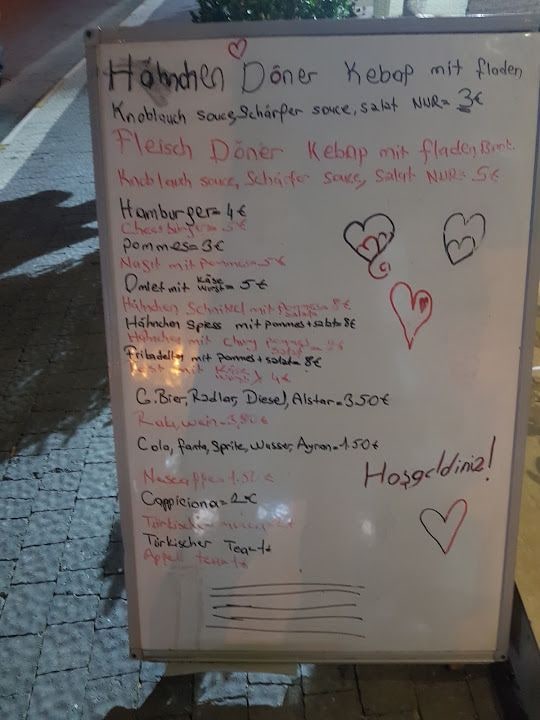 Hähnchen Döner Kebap mit fladen
Knoblauch sauce, Schärfer sauce, salat NUR= 3€
Fleisch Döner Kebap mit fladen Brot.
Knoblauch sauce, Schärfer sauce, Salat NUR= 5€
Hamburger= 4€
Cheesburger= 5€
pommes= 3€
Nagit mit pommes= 5€
Omlet mit Käse wurst = 5€
Hähnchen Schnitzel mit pommes salata = 8€
Hähnchen Spiess mit pommes+salat= 8€
Hähnchen mit Chury pommes salat = 8€
Fribadella mit pommes+salata= 8€
Tost mit Käse wurst 4€
G.Bier, Radlar, Diesel, Alstar= 3.50€
Rakı, wein= 3,50€
Cola, fanta, Sprite, Wasser, Ayran= 1.50€
Hoşgeldiniz!
Nescappe= 1.50€
Cappiciona= 2€
Türkischer
Türkischer Tea= 1€
Appel tea= 1€